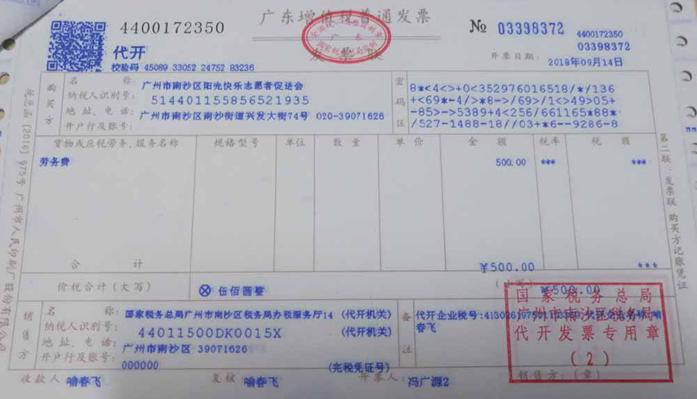 广东增值税普通发票
4400172350
№ 03398372
4400172350
03398372
代开
校验码 45089 33052 24752 83236
开票日期： 2018年09月14日
购买方
名称： 广州市南沙区阳光快乐志愿者促进会
纳税人识别号： 514401155856521935
地址、电话： 广州市南沙区南沙街道兴发大街74号 020-39071626
开户行及账号：
密码区
8*<4<>+0<352976016518/*/136
+<69*-4/>*8->/69>/1<>49>05+
-85<->->5389+4<256/661165*88*
/527-1488-18//03+*6--9286-8
货物或应税劳务、服务名称 规格型号 单位 数量 单价 金额 税率 税额
劳务费 500.00 *** ***
合计 ¥500.00 ***
价税合计（大写） ⊗ 伍佰圆整 （小写） ¥500.00
销售方
名称： 国家税务总局广州市南沙区税务局办税服务厅14 （代开机关）
纳税人识别号： 44011500DK0015X （代开机关）
地址、电话： 广州市南沙区 39071626
开户行及账号： 000000 （完税凭证号）
备注
代开企业税号:
代开企业名称:喻春飞
国家税务总局
广州市南沙区税务局
代开发票专用章
（2）
收款人： 喻春飞 复核： 喻春飞 开票人： 冯广源2 销售方：（章）
第二联：发票联 购买方记账凭证